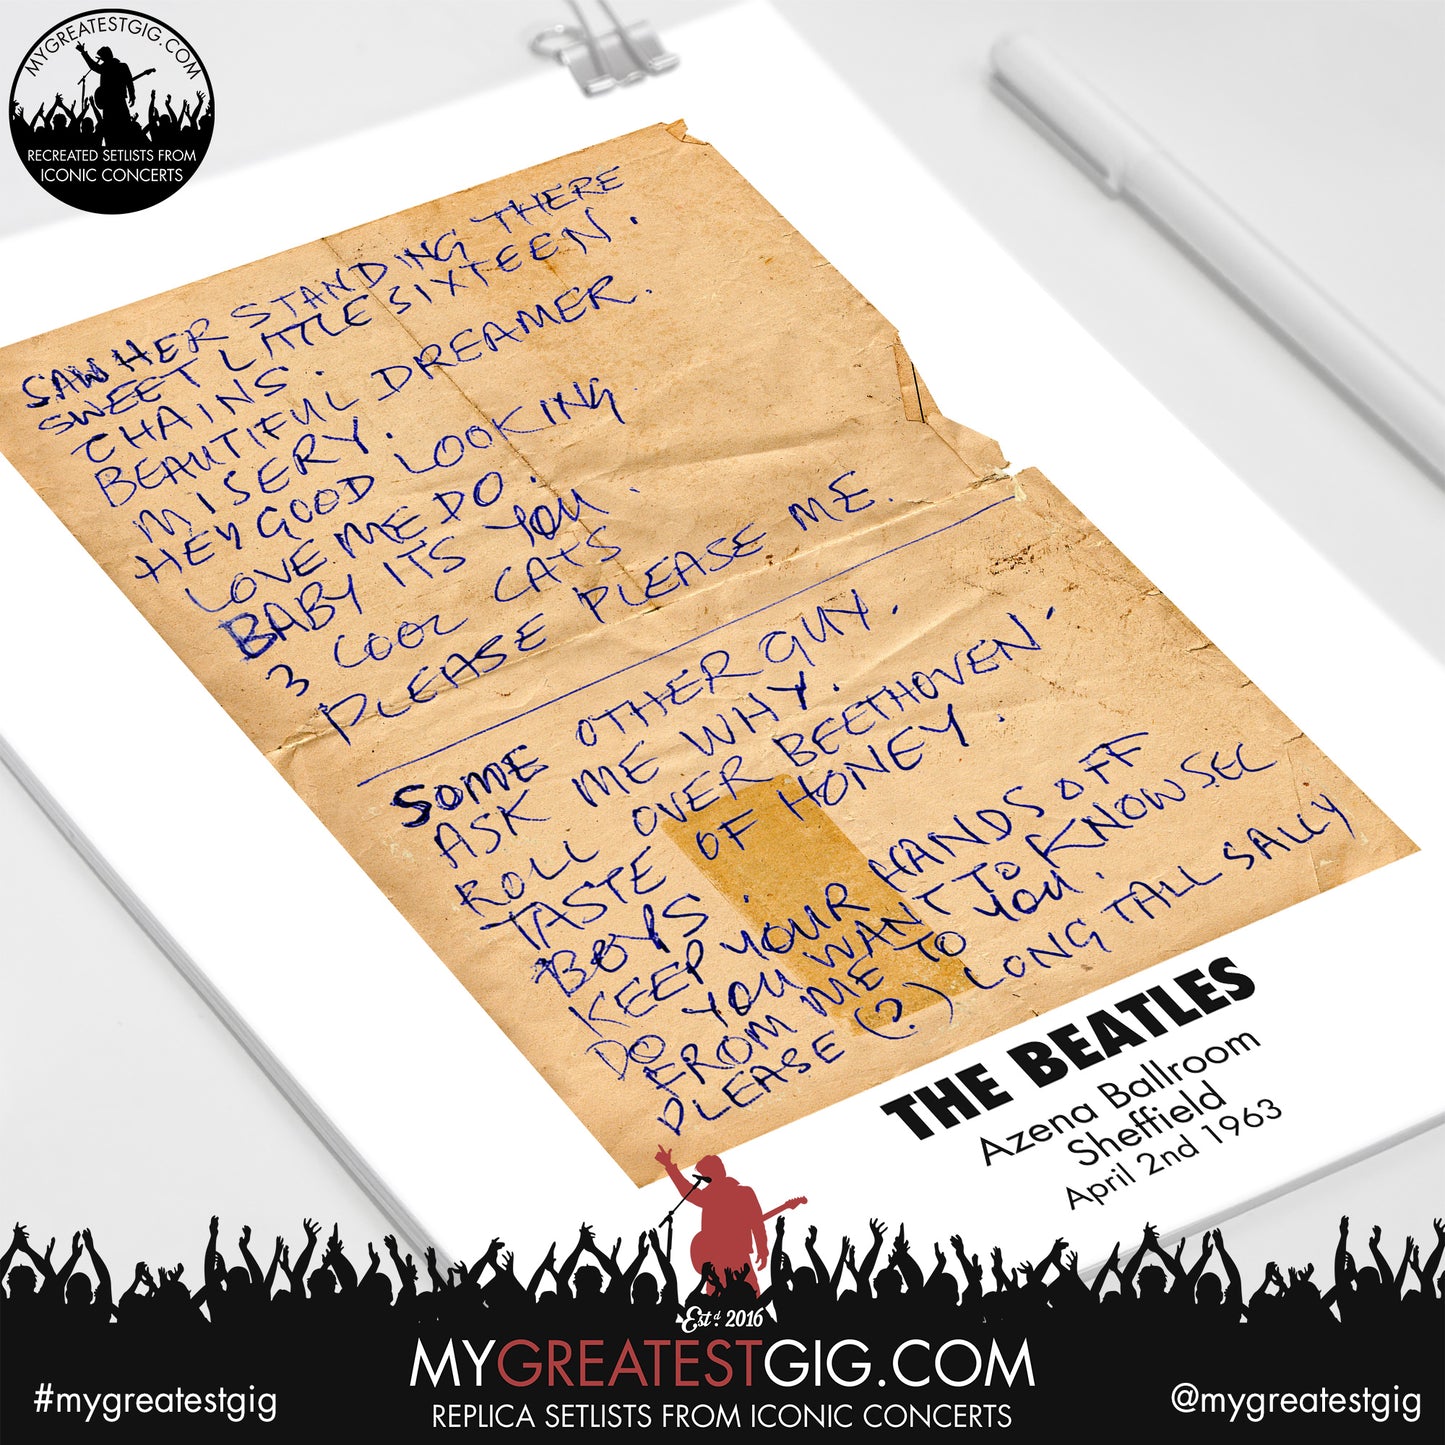 MYGREATESTGIG.COM
RECREATED SETLISTS FROM
ICONIC CONCERTS
SAW HER STANDING THERE
SWEET LITTLE SIXTEEN.
CHAINS.
BEAUTIFUL DREAMER.
MISERY.
HEY GOOD LOOKING.
LOVE ME DO.
BABY ITS YOU.
3 COOL CATS
PLEASE PLEASE ME.
SOME OTHER GUY.
ASK ME WHY.
ROLL OVER BEETHOVEN.
TASTE OF HONEY.
BOYS.
KEEP YOUR HANDS OFF
DO YOU WANT TO KNOW SEC
FROM ME TO YOU.
PLEASE (?) LONG TALL SALLY
THE BEATLES
Azena Ballroom
Sheffield
April 2nd 1963
Estd. 2016
MYGREATESTGIG.COM
#mygreatestgig
REPLICA SETLISTS FROM ICONIC CONCERTS
@mygreatestgig